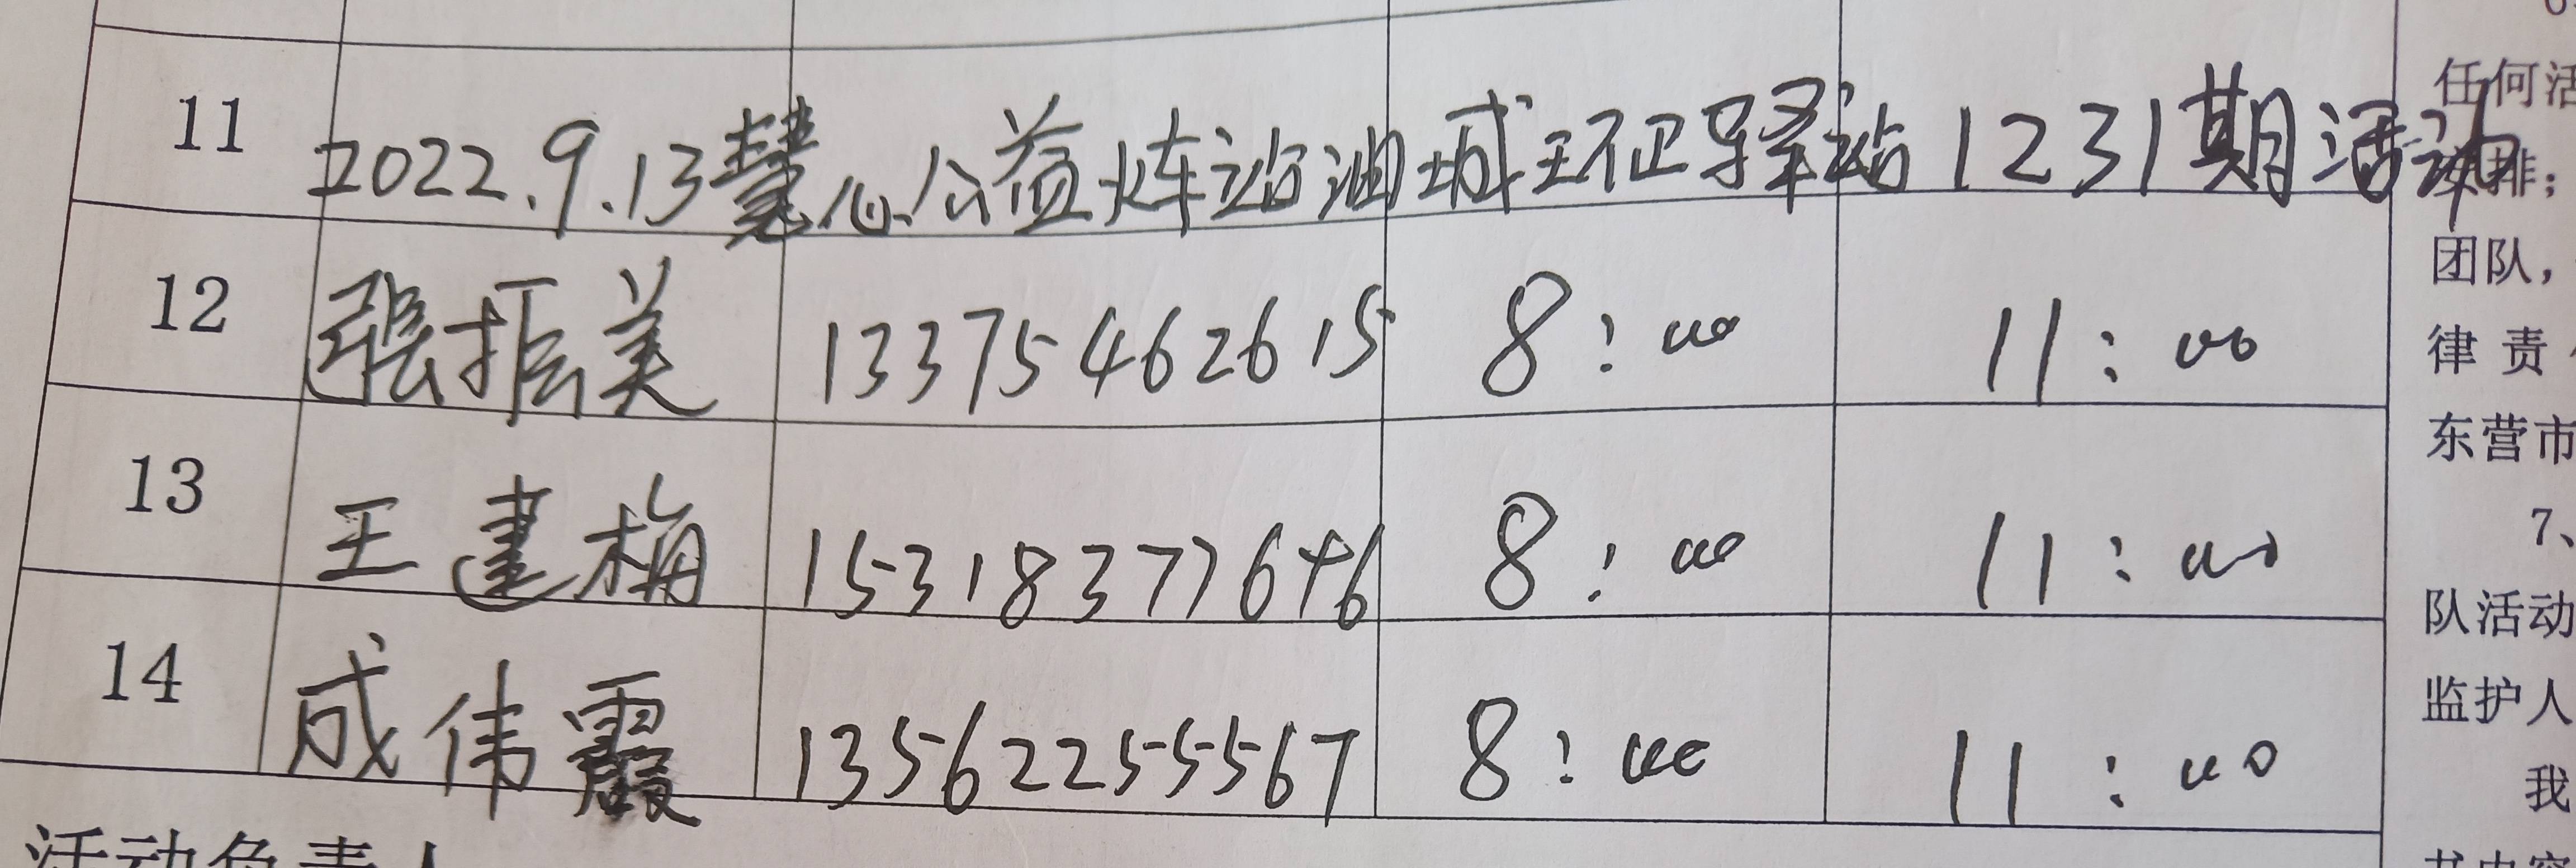 11 2022.9.13慧心公益炼站油城环卫驿站1231期活动
12 张振美 13375462615 8:00 11:00
13 王建梅 15318377646 8:00 11:00
14 成伟霞 13562255567 8:00 11:00
活动负责人
任何活
排；
团队，
律责
东营市
7、
队活动
监护人
我